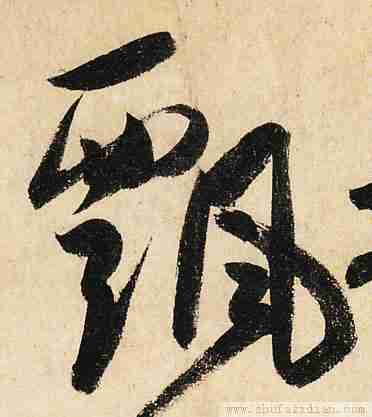 飘
www.shufazidian.com